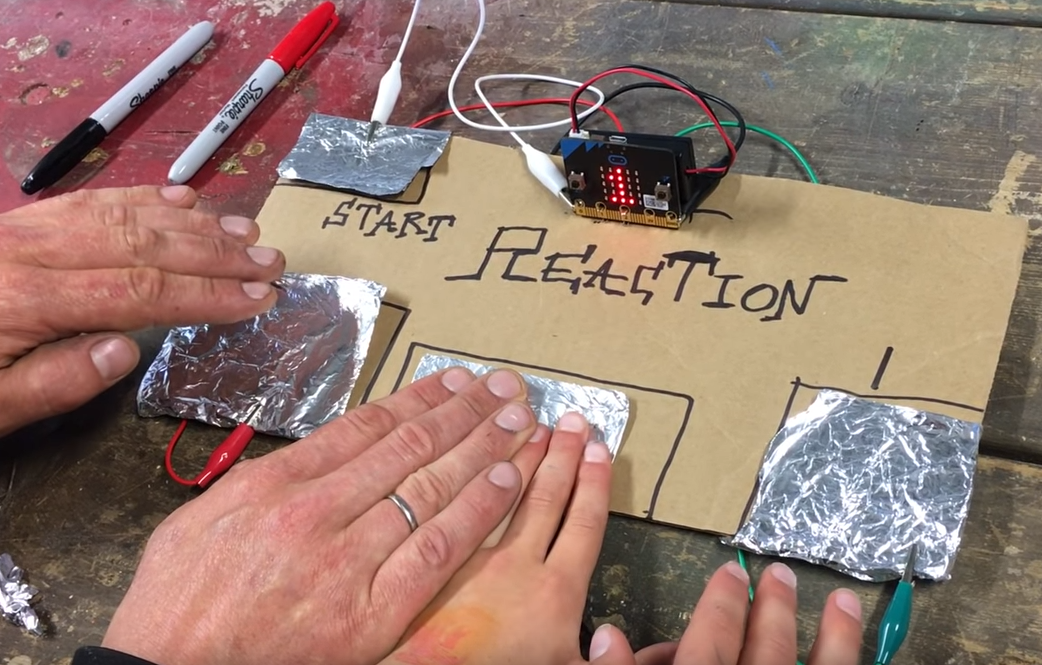 Sharpie
Sharpie
START
REACTION
1